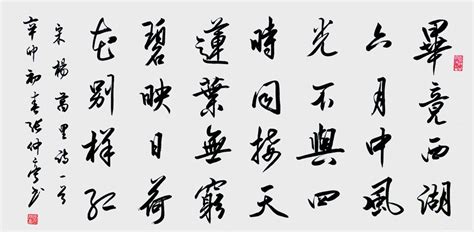 畢竟西湖
六月中風
光不與四
時同接天
蓮葉無窮
碧映日荷
花別樣紅
宋楊萬里詩一首
辛卯初春張仲亭书